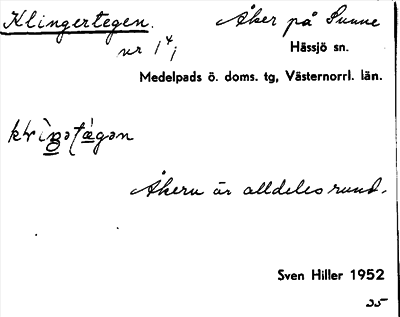 Klingertegen. Åker på Sunne
nr 1⁴/₁
Hässjö sn.
Medelpads ö. doms. tg, Västernorrl. län.
Åkern är alldeles rund.
Sven Hiller 1952
25